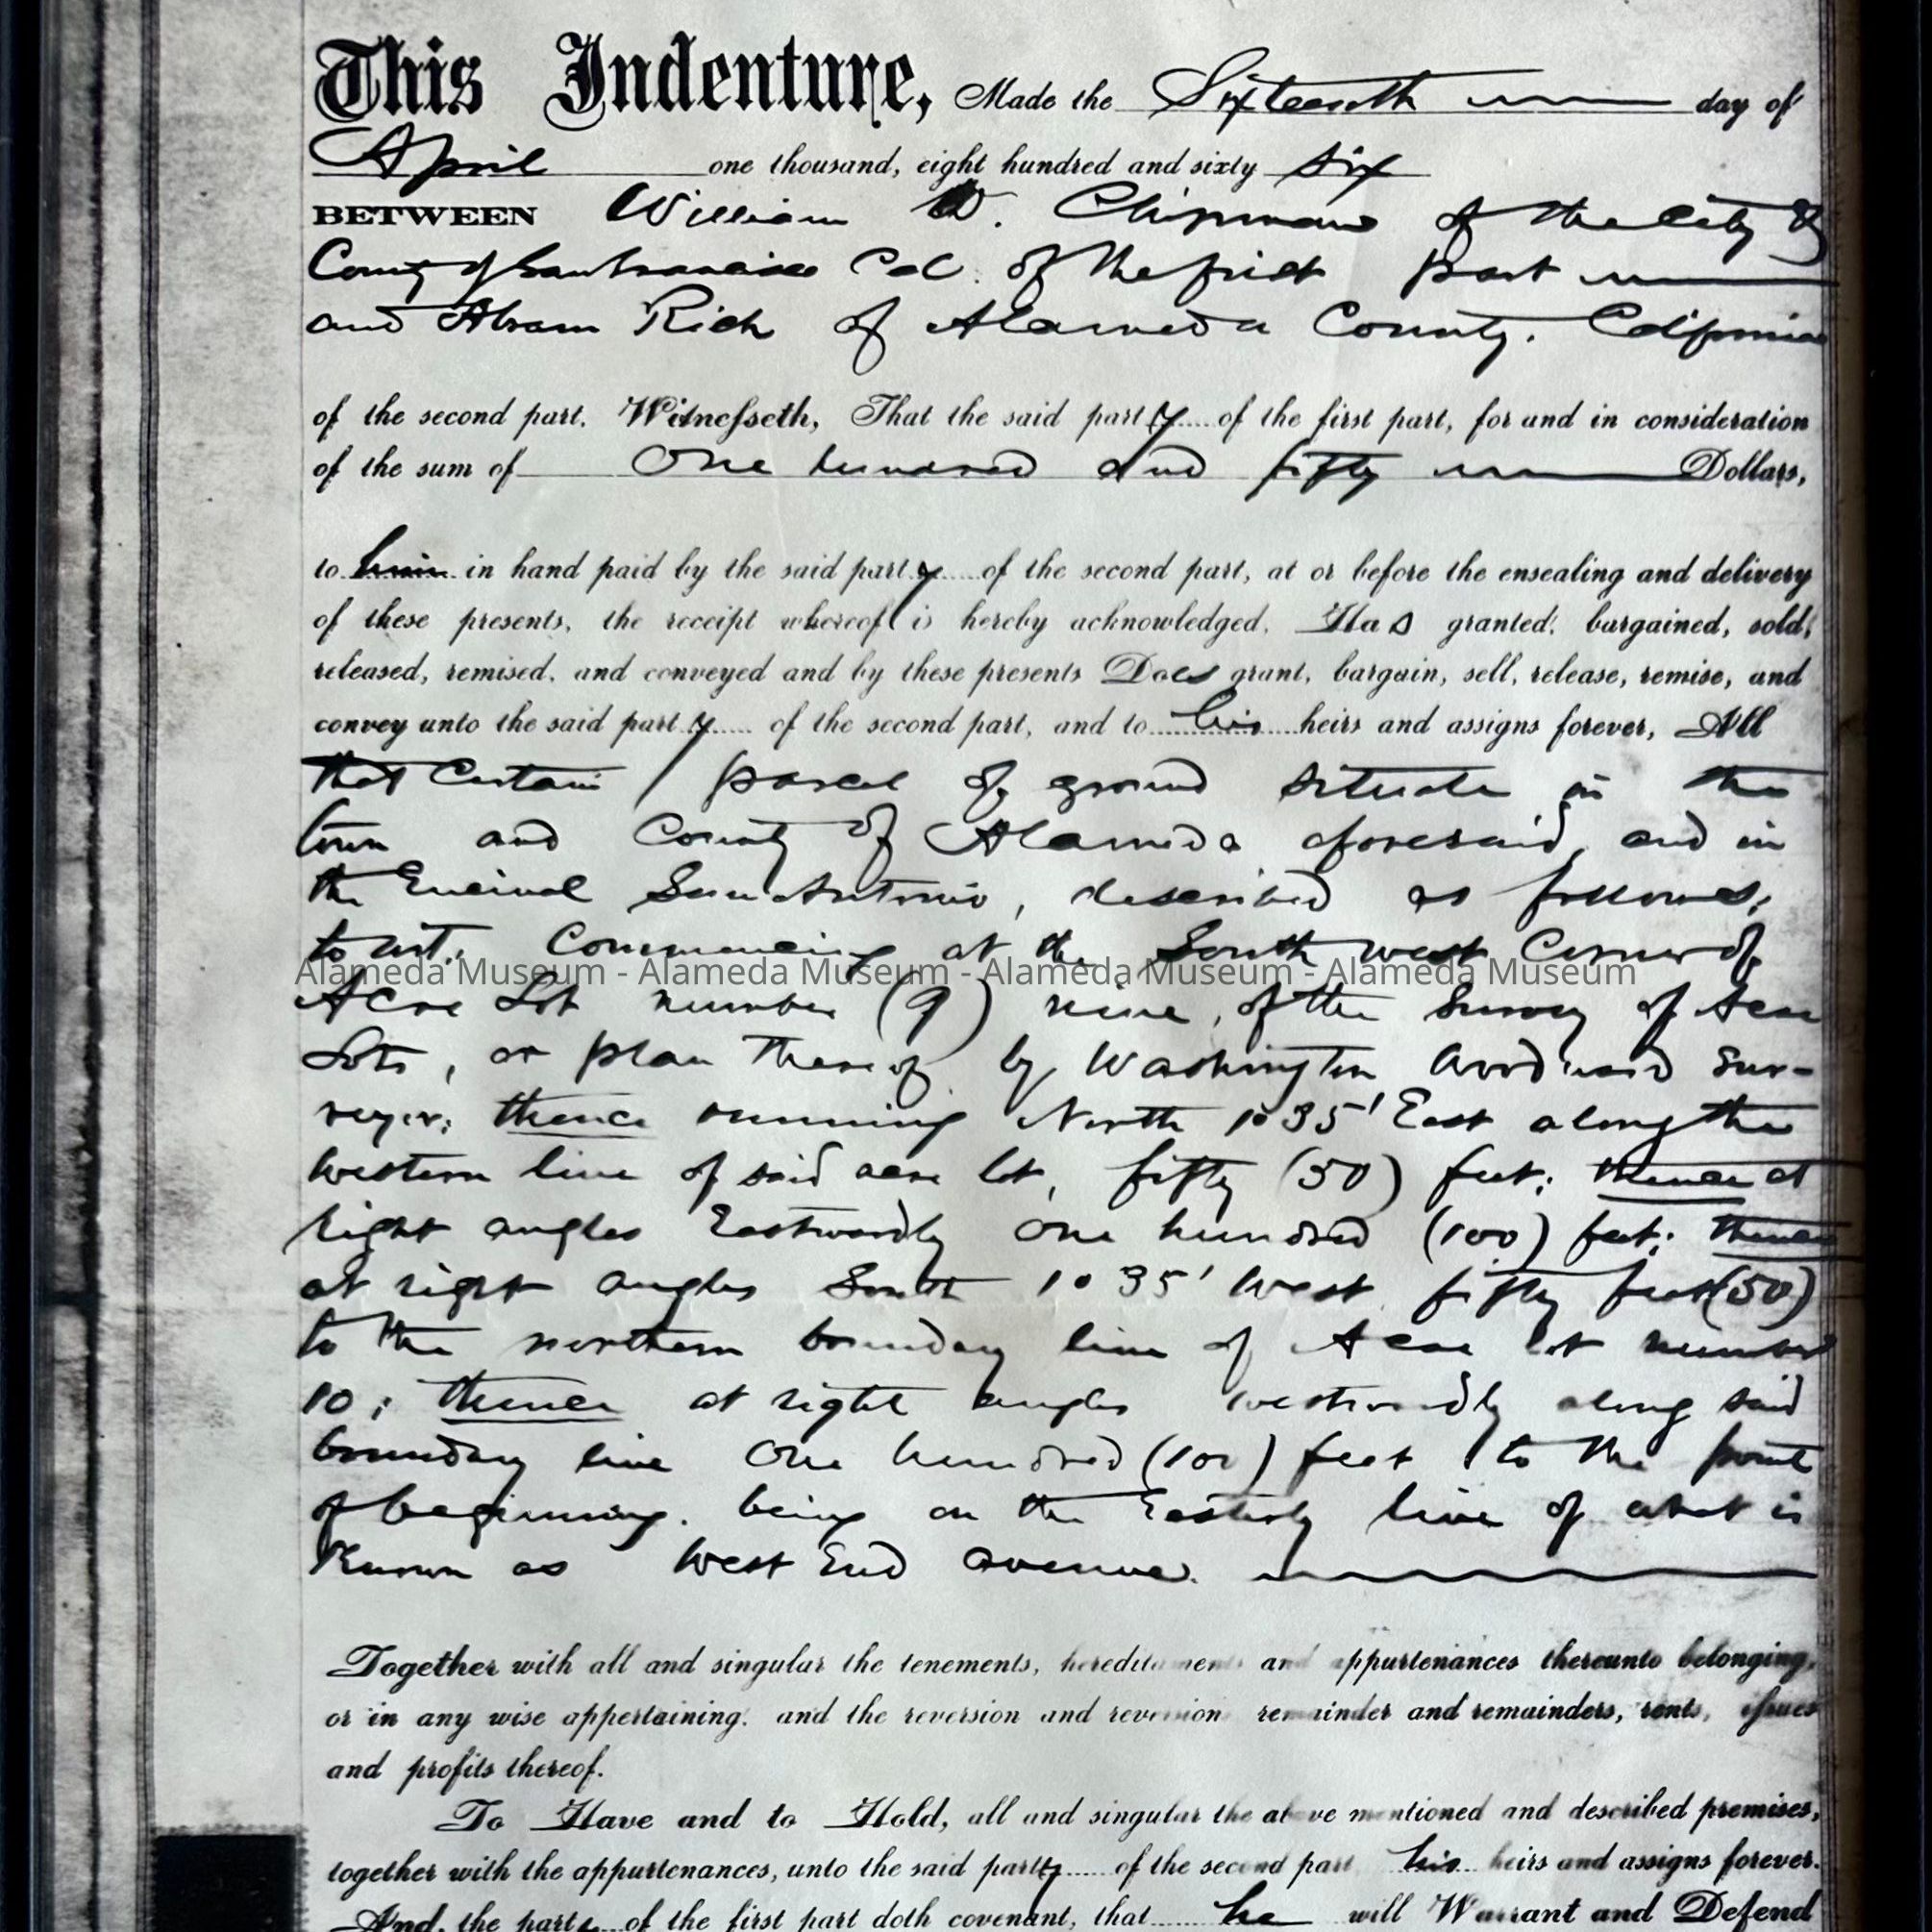 This Indenture, Made the Sixteenth day of
April one thousand, eight hundred and sixty six
BETWEEN William W. Chipman of the City &
County of San Francisco Cal. of the first part
and Abram Rich of Alameda County. California
of the second part. Witnesseth, That the said party of the first part, for and in consideration
of the sum of One hundred and fifty Dollars,
to him in hand paid by the said party of the second part, at or before the ensealing and delivery
of these presents, the receipt whereof is hereby acknowledged, Has granted, bargained, sold,
released, remised, and conveyed and by these presents Does grant, bargain, sell, release, remise, and
convey unto the said party of the second part, and to his heirs and assigns forever, All
that Certain parcel of ground situate in the
town and County of Alameda aforesaid, and in
the Encinal San Antonio, described as follows;
to wit: Commencing at the South west Corner of
Alameda Museum - Alameda Museum - Alameda Museum - Alameda Museum
Acre Lot number (9) nine, of the Survey of Acre
Lots, or plan thereof by Washington Sur-
veyor; thence running North 1° 35' East along the
western line of said acre lot, fifty (50) feet; thence at
right angles Eastwardly one hundred (100) feet; thence
at right angles South 1° 35' West fifty feet (50)
to the northern boundary line of Acre lot number
10; thence at right angles westwardly along said
boundary line One hundred (100) feet to the point
of beginning. being on the Easterly line of what is
Known as West End avenue.
Together with all and singular the tenements, hereditaments and appurtenances thereunto belonging,
or in any wise appertaining. and the reversion and reversion remainder and remainders, rents, issues
and profits thereof.
To Have and to Hold, all and singular the above mentioned and described premises,
together with the appurtenances, unto the said party of the second part his heirs and assigns forever.
And, the party of the first part doth covenant, that he will Warrant and Defend